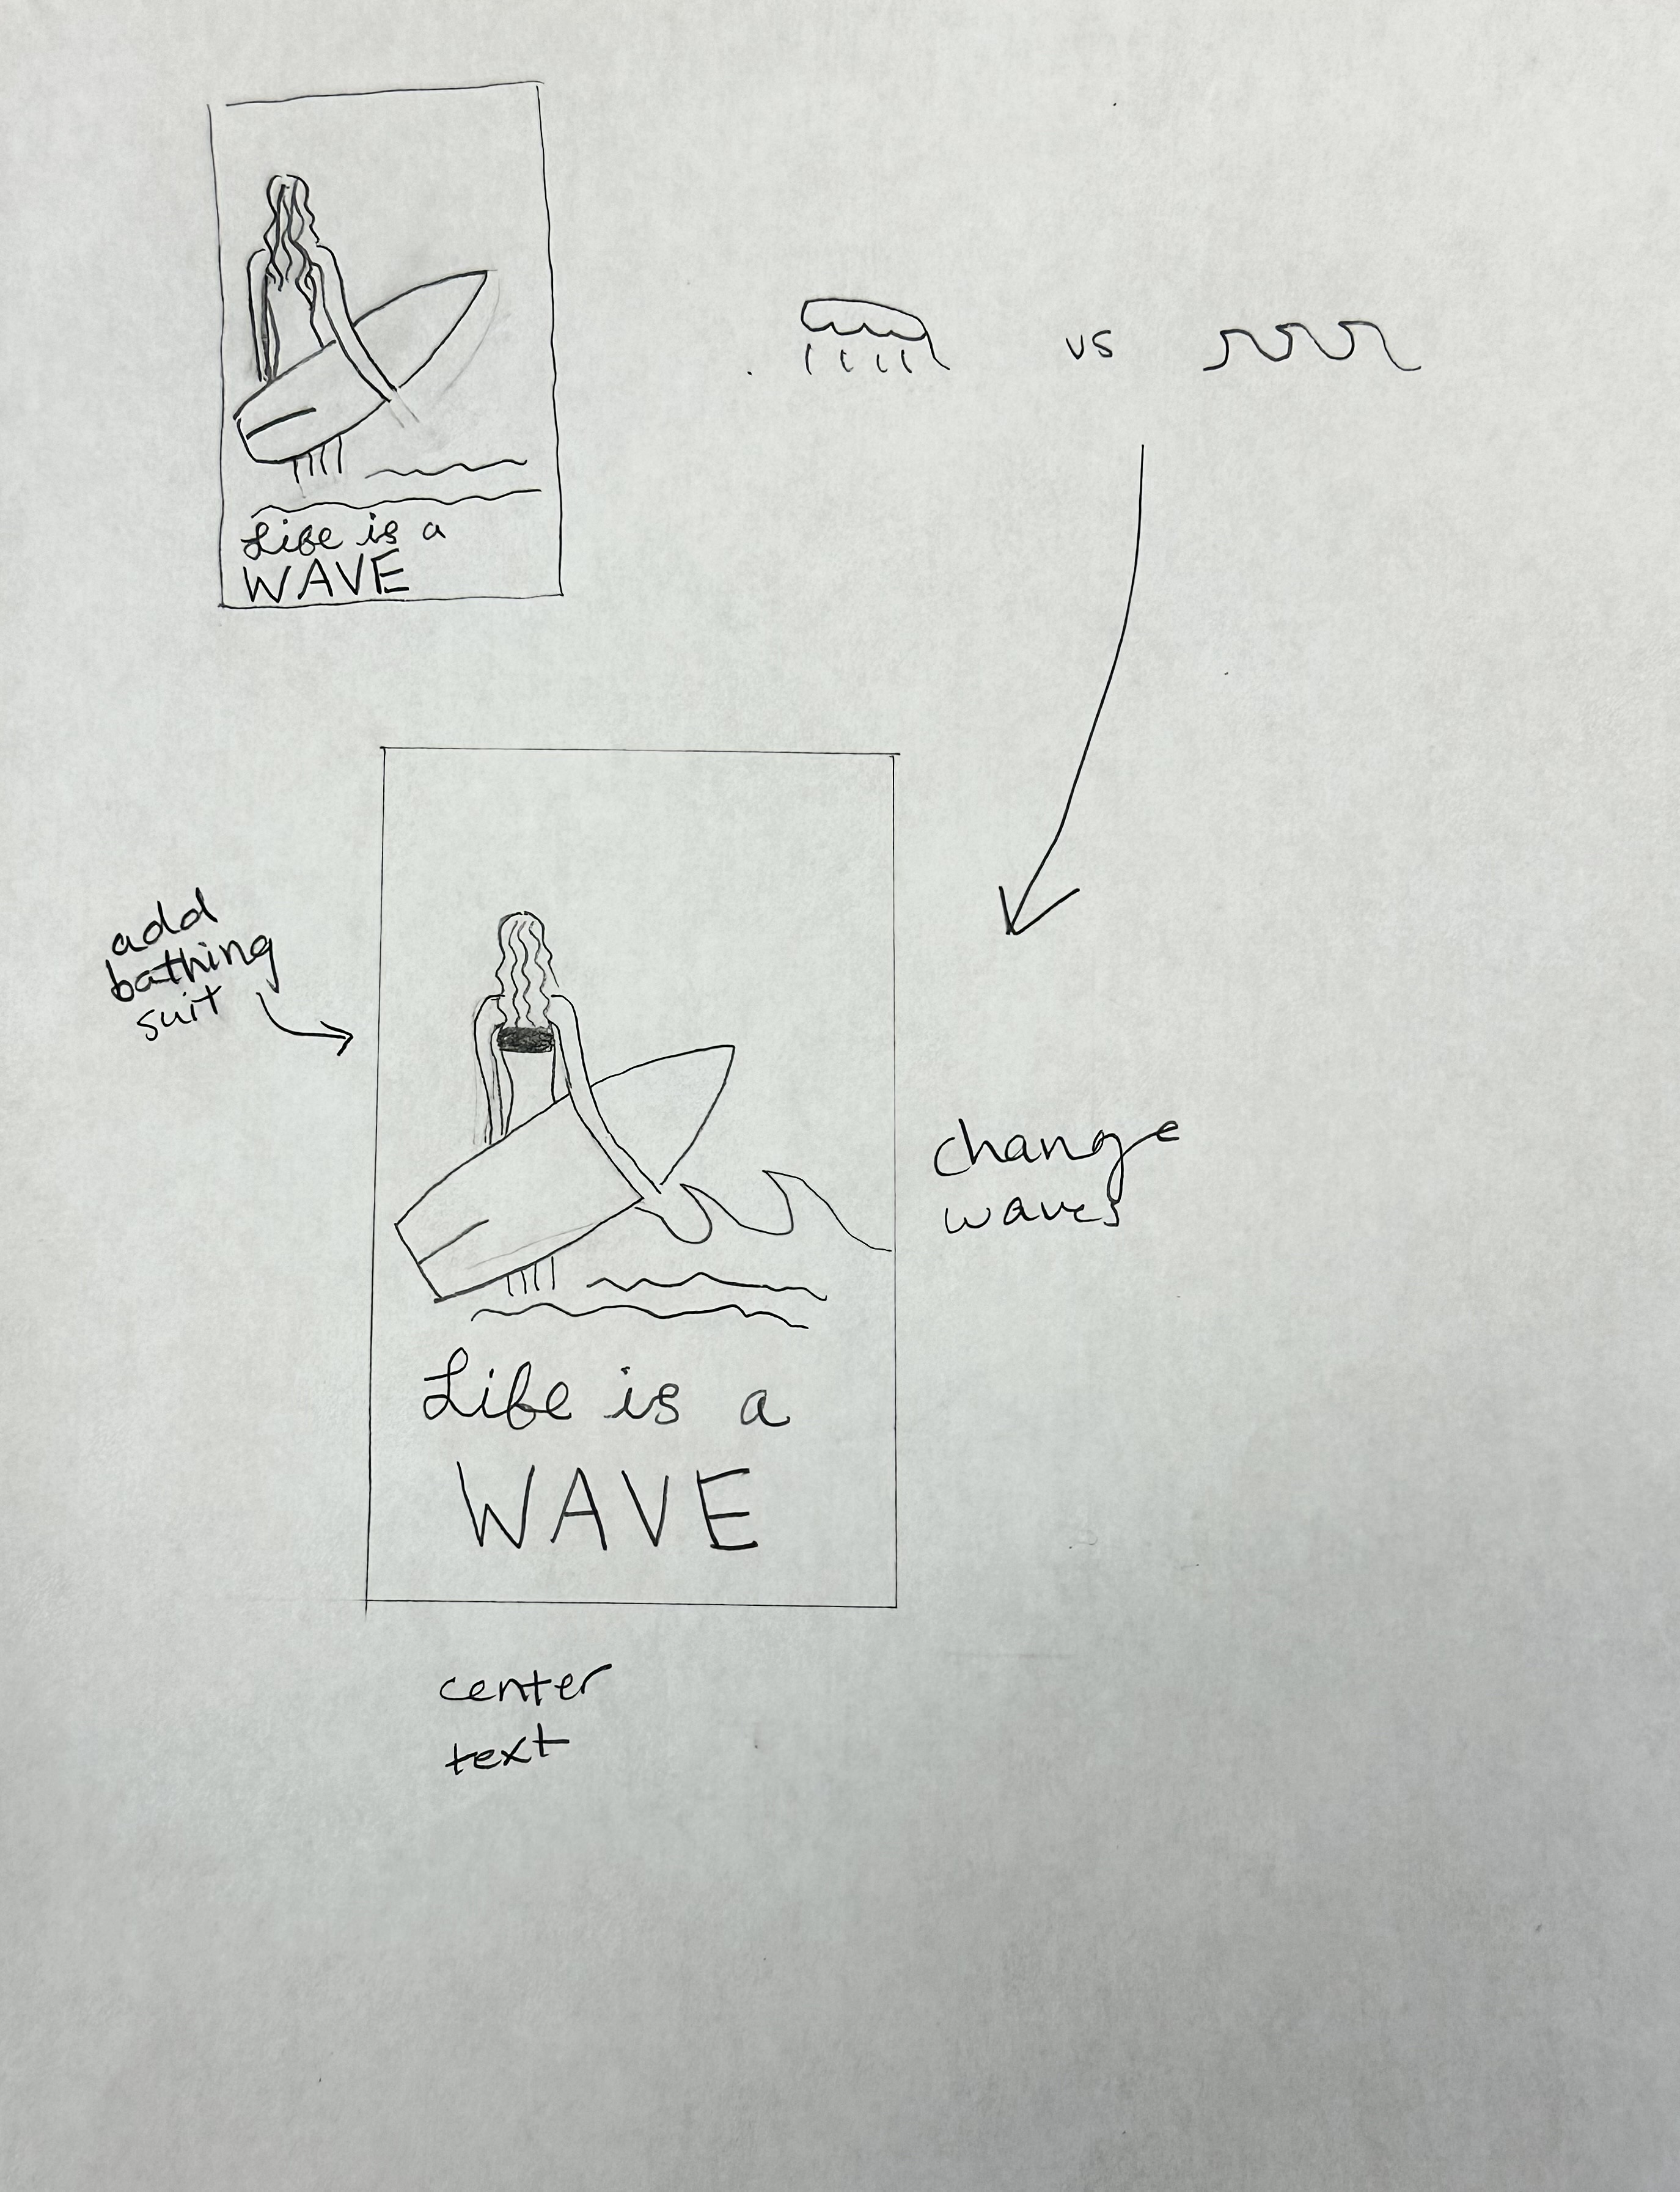 Life is a
WAVE
vs
add
bathing
suit
change
waves
Life is a
WAVE
center
text